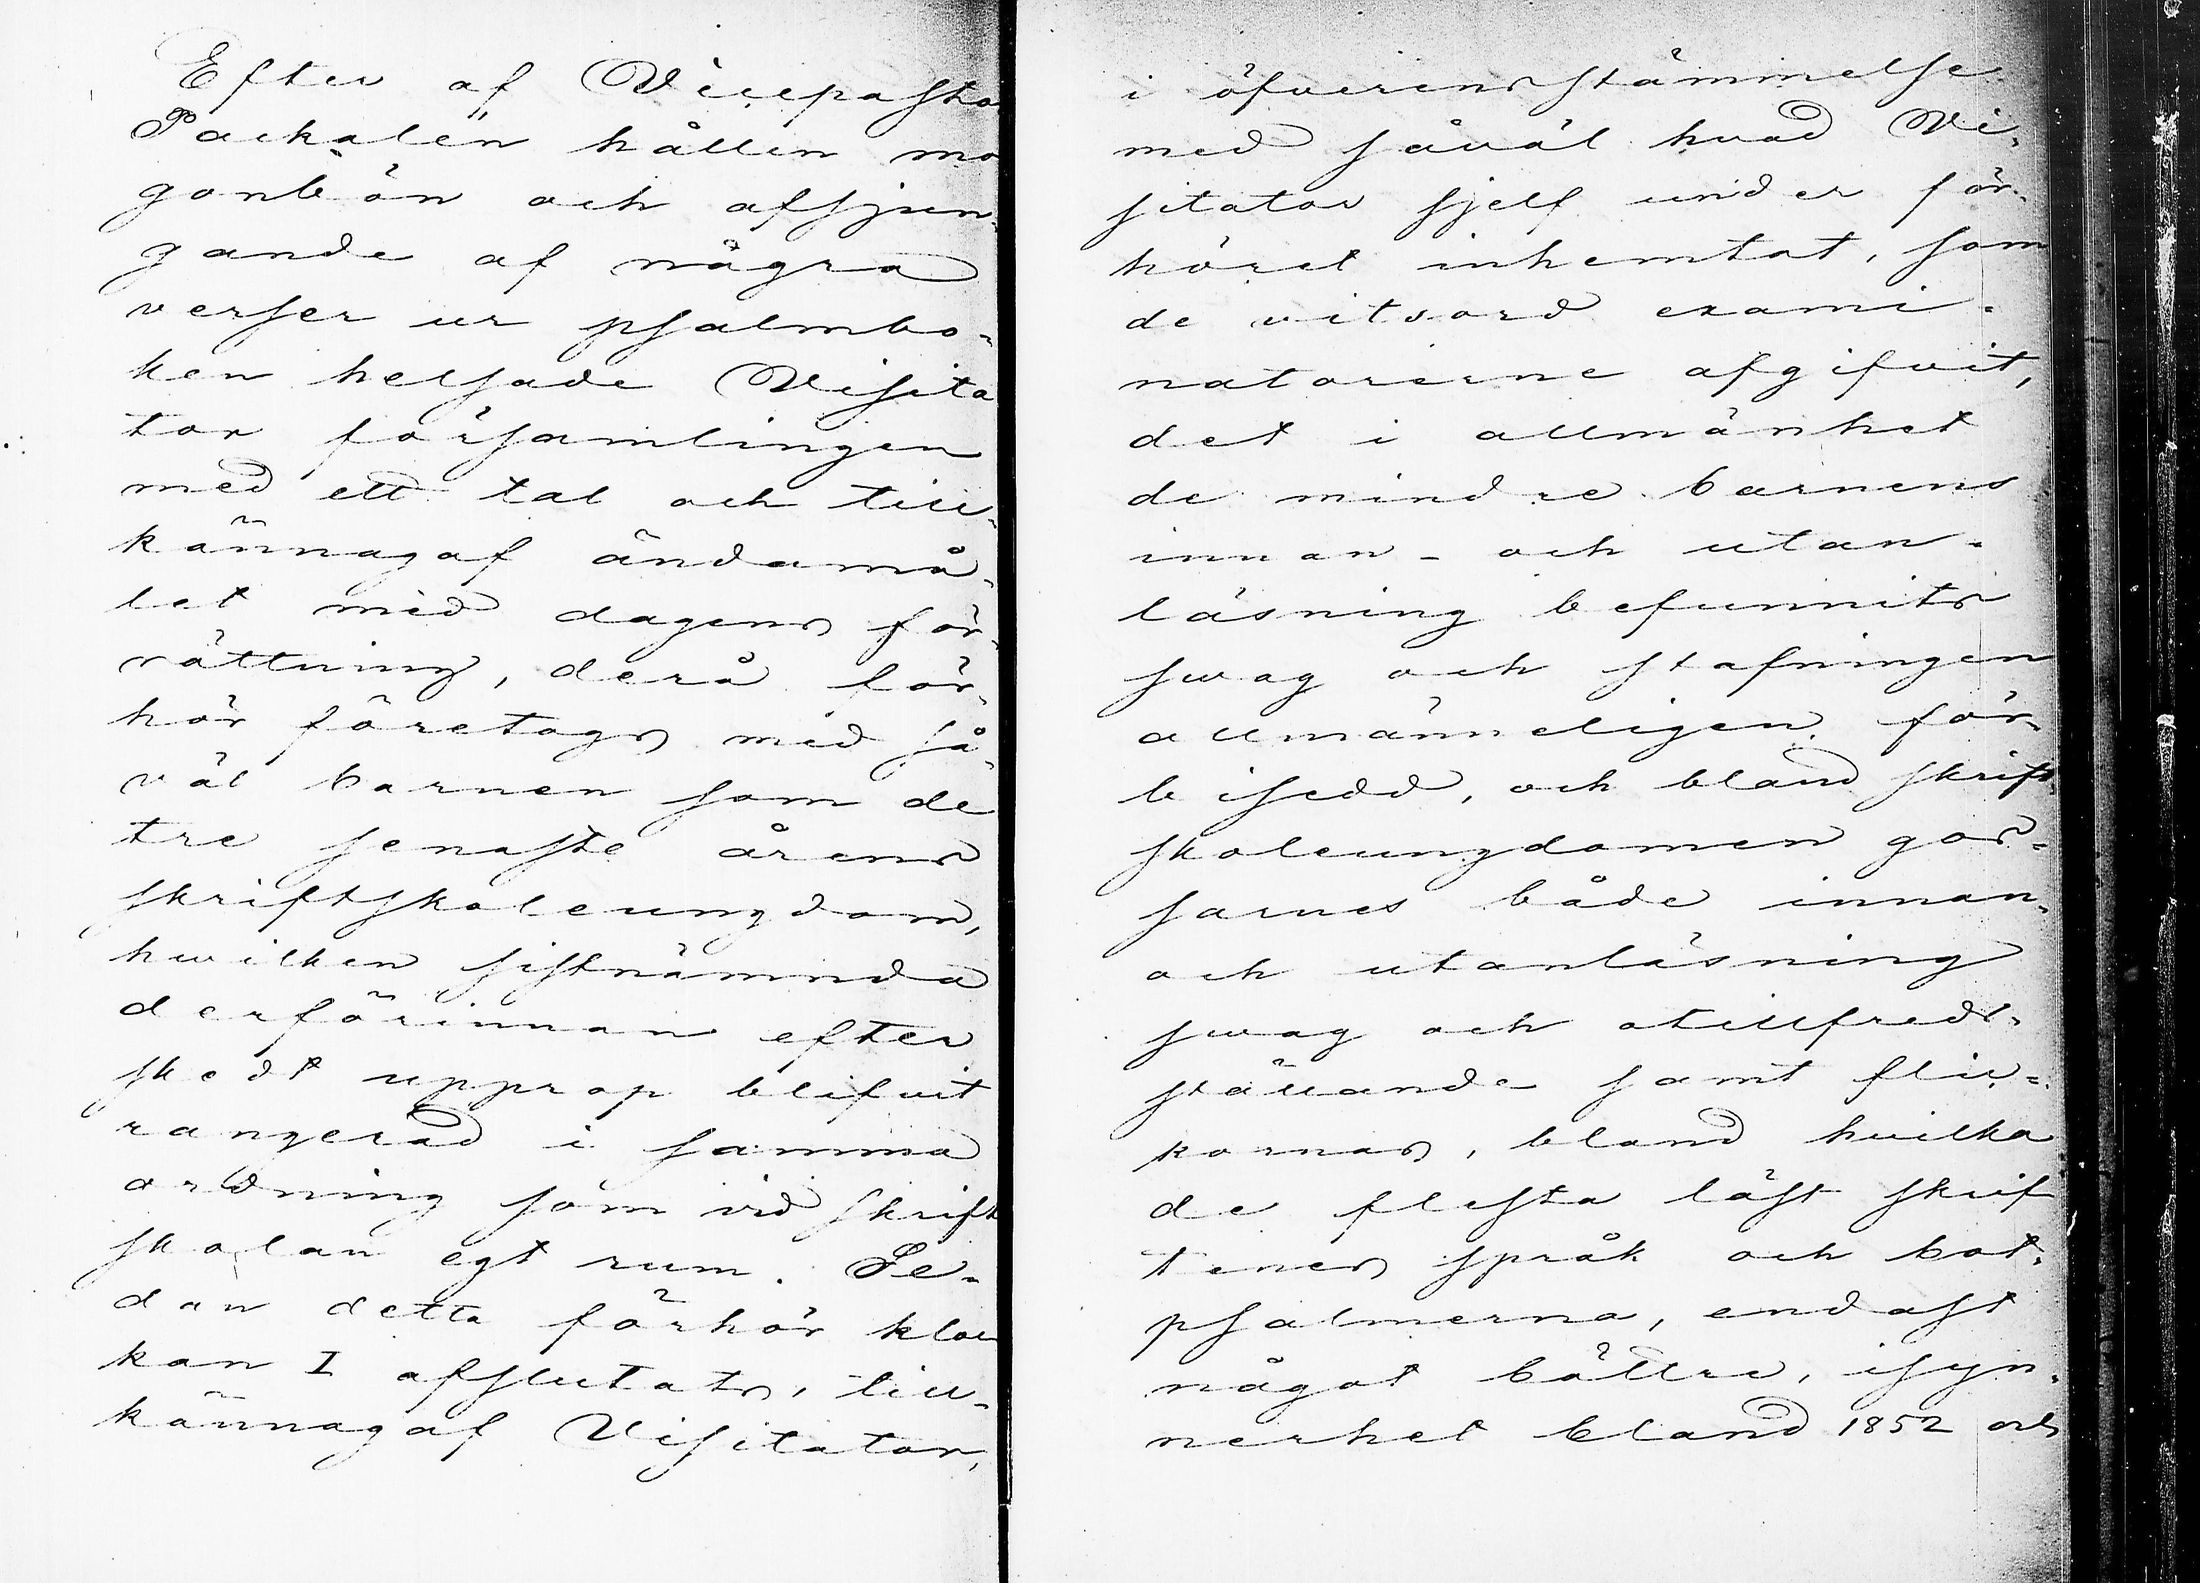 Efter af Vicepasto
Packalén hållen mo
gonbön och afsjun-
gande af några
verser ur psalmbo-
ken helsade Visita
tor församlingen
med ett tal och till-
kännagaf ändamå-
let med dagens för-
rättning, derå för-
hör företogs med så-
väl barnen som de
tre senaste årens
skriftskoleungdom,
hwilken sistnämnda
derförinnan efter
skedt upprop blifvit
rangerad i samma
ordning som vid skrift
skolan egt rum. Se-
dan detta förhör kloc
kan I afslutats, till-
kännagaf Visitator,
i öfverensstämmelse
med såväl hvad Vi-
sitator sjelf under för-
höret inhemtat, som
de vitsord exami-
natorerne afgifvit,
det i allmänhet
de mindre barnens
innan- och utan-
läsning befunnits
swag och stafningen
allmänneligen för-
bisedd, och bland skrift-
skoleungdomen gos-
sarnes både innan-
och utanläsning
swag och otillfreds-
ställande samt flic-
kornas, bland hvilka
de flesta läst skrif
tenes språk och bot-
psalmerna, endast
något bättre, isyn-
nerhet bland 1852 och